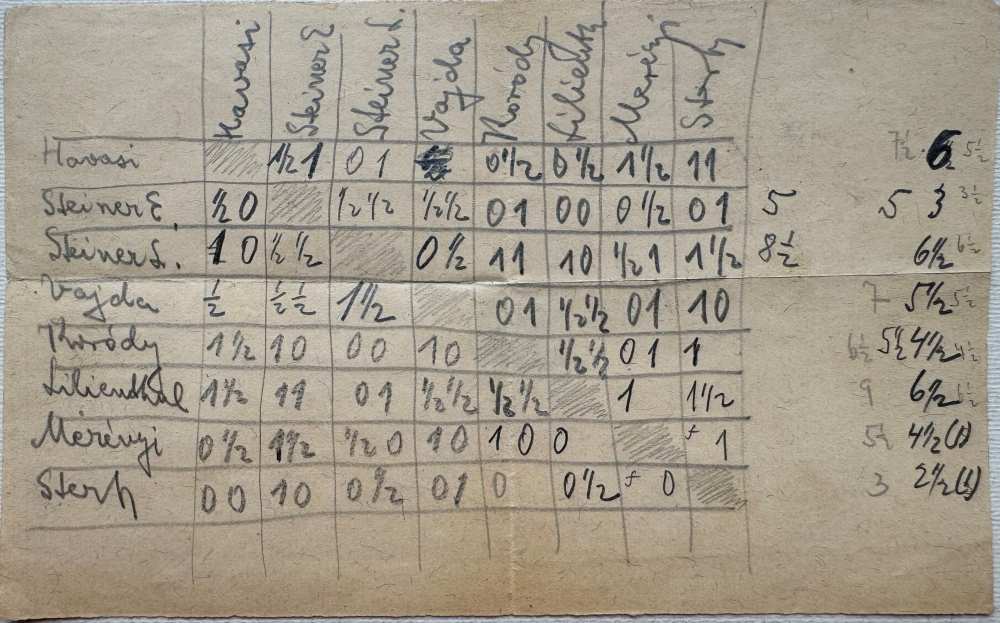 Havasi Steiner E Steiner L. Vajda Koródy Lilienthal Merényi Sterk
Havasi ½1 01 0½ 0½ 1½ 11 7½ 6 5½
Steiner E. ½0 ½½ ½½ 01 00 0½ 01 5 5 3 3½
Steiner L. 10 ½½ 0½ 11 10 ½1 1½ 8½ 6½ 6½
Vajda ½ ½½ 1½ 01 ½½ 01 10 7 5½ 5½
Koródy 1½ 10 00 10 ½½ 01 1 6½ 5½ 4½ 4½
Lilienthal 1½ 11 01 ½½ ½½ 1 1½ 9 6½
Merényi 0½ 1½ ½0 10 10 0 f 1 5½ 4½(1)
Sterk 00 10 0½ 01 0 0½ f 0 3 2½(½)